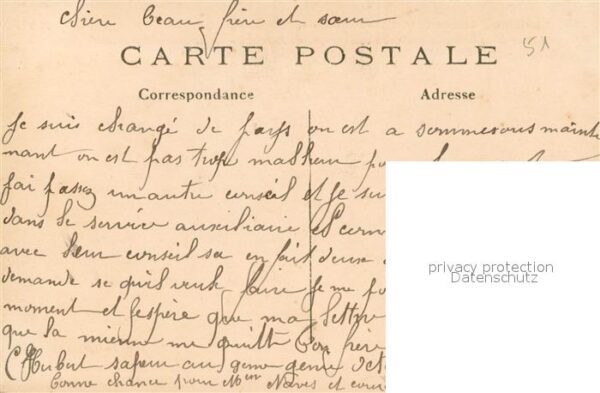 chère beau frère et sœur
51
CARTE POSTALE
Correspondance
Adresse
Je suis changé de pays on est a sommesous mainte
nant on est pas trop malheu
fai passez un autre conseil et je sui
dans le service auxiliaire et
avec leur conseil sa en fait deux
demande se quil veule faire je me
moment et jespère que ma lettre
que la mienne me quitte ton frère
Hubert sapeur au genie
bonne chance pour Mer Naves et
privacy protection
Datenschutz